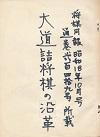 将棋月報 昭和十六年10月号
通巻弐百四拾九号 所載
大道詰将棋の沿革